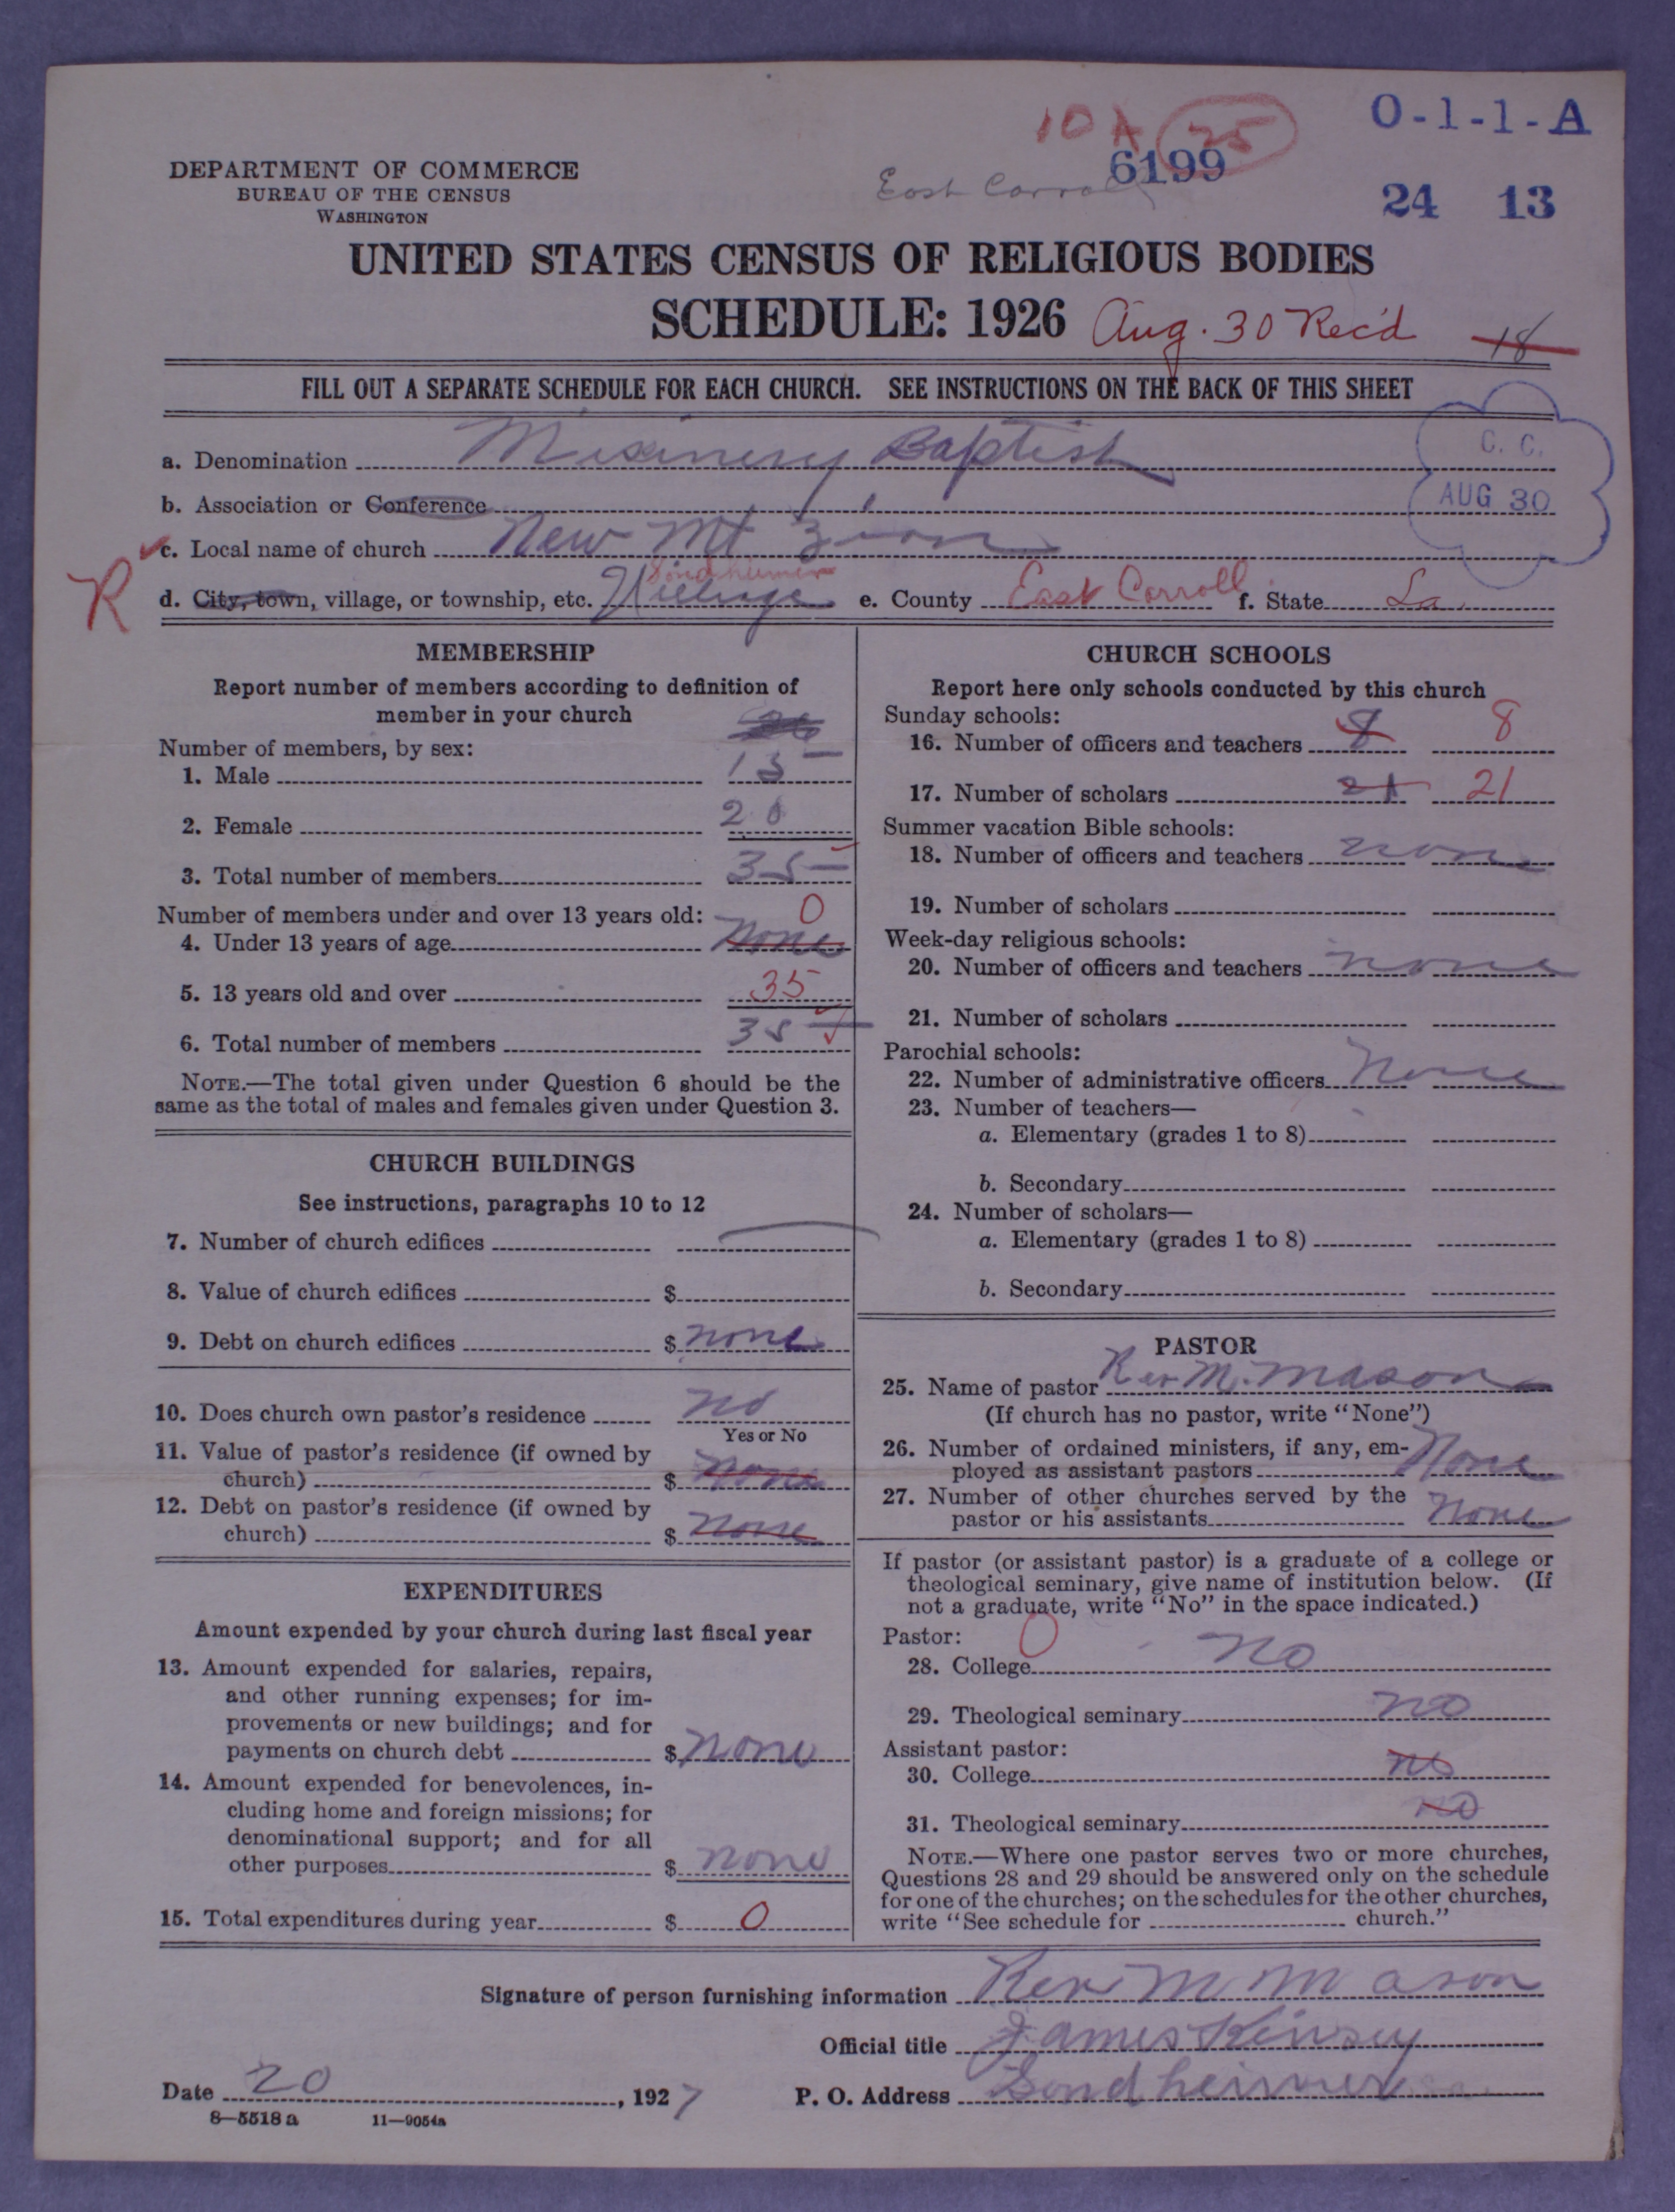 10 A 25
O-1-1-A
DEPARTMENT OF COMMERCE
BUREAU OF THE CENSUS
WASHINGTON
East Carroll
6199
24 13
UNITED STATES CENSUS OF RELIGIOUS BODIES
SCHEDULE: 1926 Aug. 30 Rec'd 18
FILL OUT A SEPARATE SCHEDULE FOR EACH CHURCH. SEE INSTRUCTIONS ON THE BACK OF THIS SHEET
C. C.
AUG 30
a. Denomination Missinery Baptist
b. Association or Conference
c. Local name of church New Mt Zion
R
Sondheimer
d. City, town, village, or township, etc. Village e. County East Carroll f. State La.
MEMBERSHIP
Report number of members according to definition of
member in your church
Number of members, by sex:
1. Male 15
2. Female 20
3. Total number of members 35
Number of members under and over 13 years old: 0
4. Under 13 years of age none
5. 13 years old and over 35
6. Total number of members 35
NOTE.—The total given under Question 6 should be the
same as the total of males and females given under Question 3.
CHURCH BUILDINGS
See instructions, paragraphs 10 to 12
7. Number of church edifices
8. Value of church edifices $
9. Debt on church edifices $ none
10. Does church own pastor's residence no
Yes or No
11. Value of pastor's residence (if owned by
church) $ none
12. Debt on pastor's residence (if owned by
church) $ none
EXPENDITURES
Amount expended by your church during last fiscal year
13. Amount expended for salaries, repairs,
and other running expenses; for im-
provements or new buildings; and for
payments on church debt $ none
14. Amount expended for benevolences, in-
cluding home and foreign missions; for
denominational support; and for all
other purposes $ none
15. Total expenditures during year $ 0
CHURCH SCHOOLS
Report here only schools conducted by this church
Sunday schools:
16. Number of officers and teachers 8 8
17. Number of scholars 21 21
Summer vacation Bible schools:
18. Number of officers and teachers none
19. Number of scholars
Week-day religious schools:
20. Number of officers and teachers none
21. Number of scholars
Parochial schools:
22. Number of administrative officers None
23. Number of teachers—
a. Elementary (grades 1 to 8)
b. Secondary
24. Number of scholars—
a. Elementary (grades 1 to 8)
b. Secondary
PASTOR
25. Name of pastor Rev M. Mason
(If church has no pastor, write "None")
26. Number of ordained ministers, if any, em-
ployed as assistant pastors None
27. Number of other churches served by the
pastor or his assistants None
If pastor (or assistant pastor) is a graduate of a college or
theological seminary, give name of institution below. (If
not a graduate, write "No" in the space indicated.)
Pastor: 0
28. College no
29. Theological seminary no
Assistant pastor:
30. College no
31. Theological seminary no
NOTE.—Where one pastor serves two or more churches,
Questions 28 and 29 should be answered only on the schedule
for one of the churches; on the schedules for the other churches,
write "See schedule for church."
Signature of person furnishing information Rev M Mason
Official title James Kinsey
Date 20, 1927 P. O. Address Sondheimer
8—5518 a 11—9054a